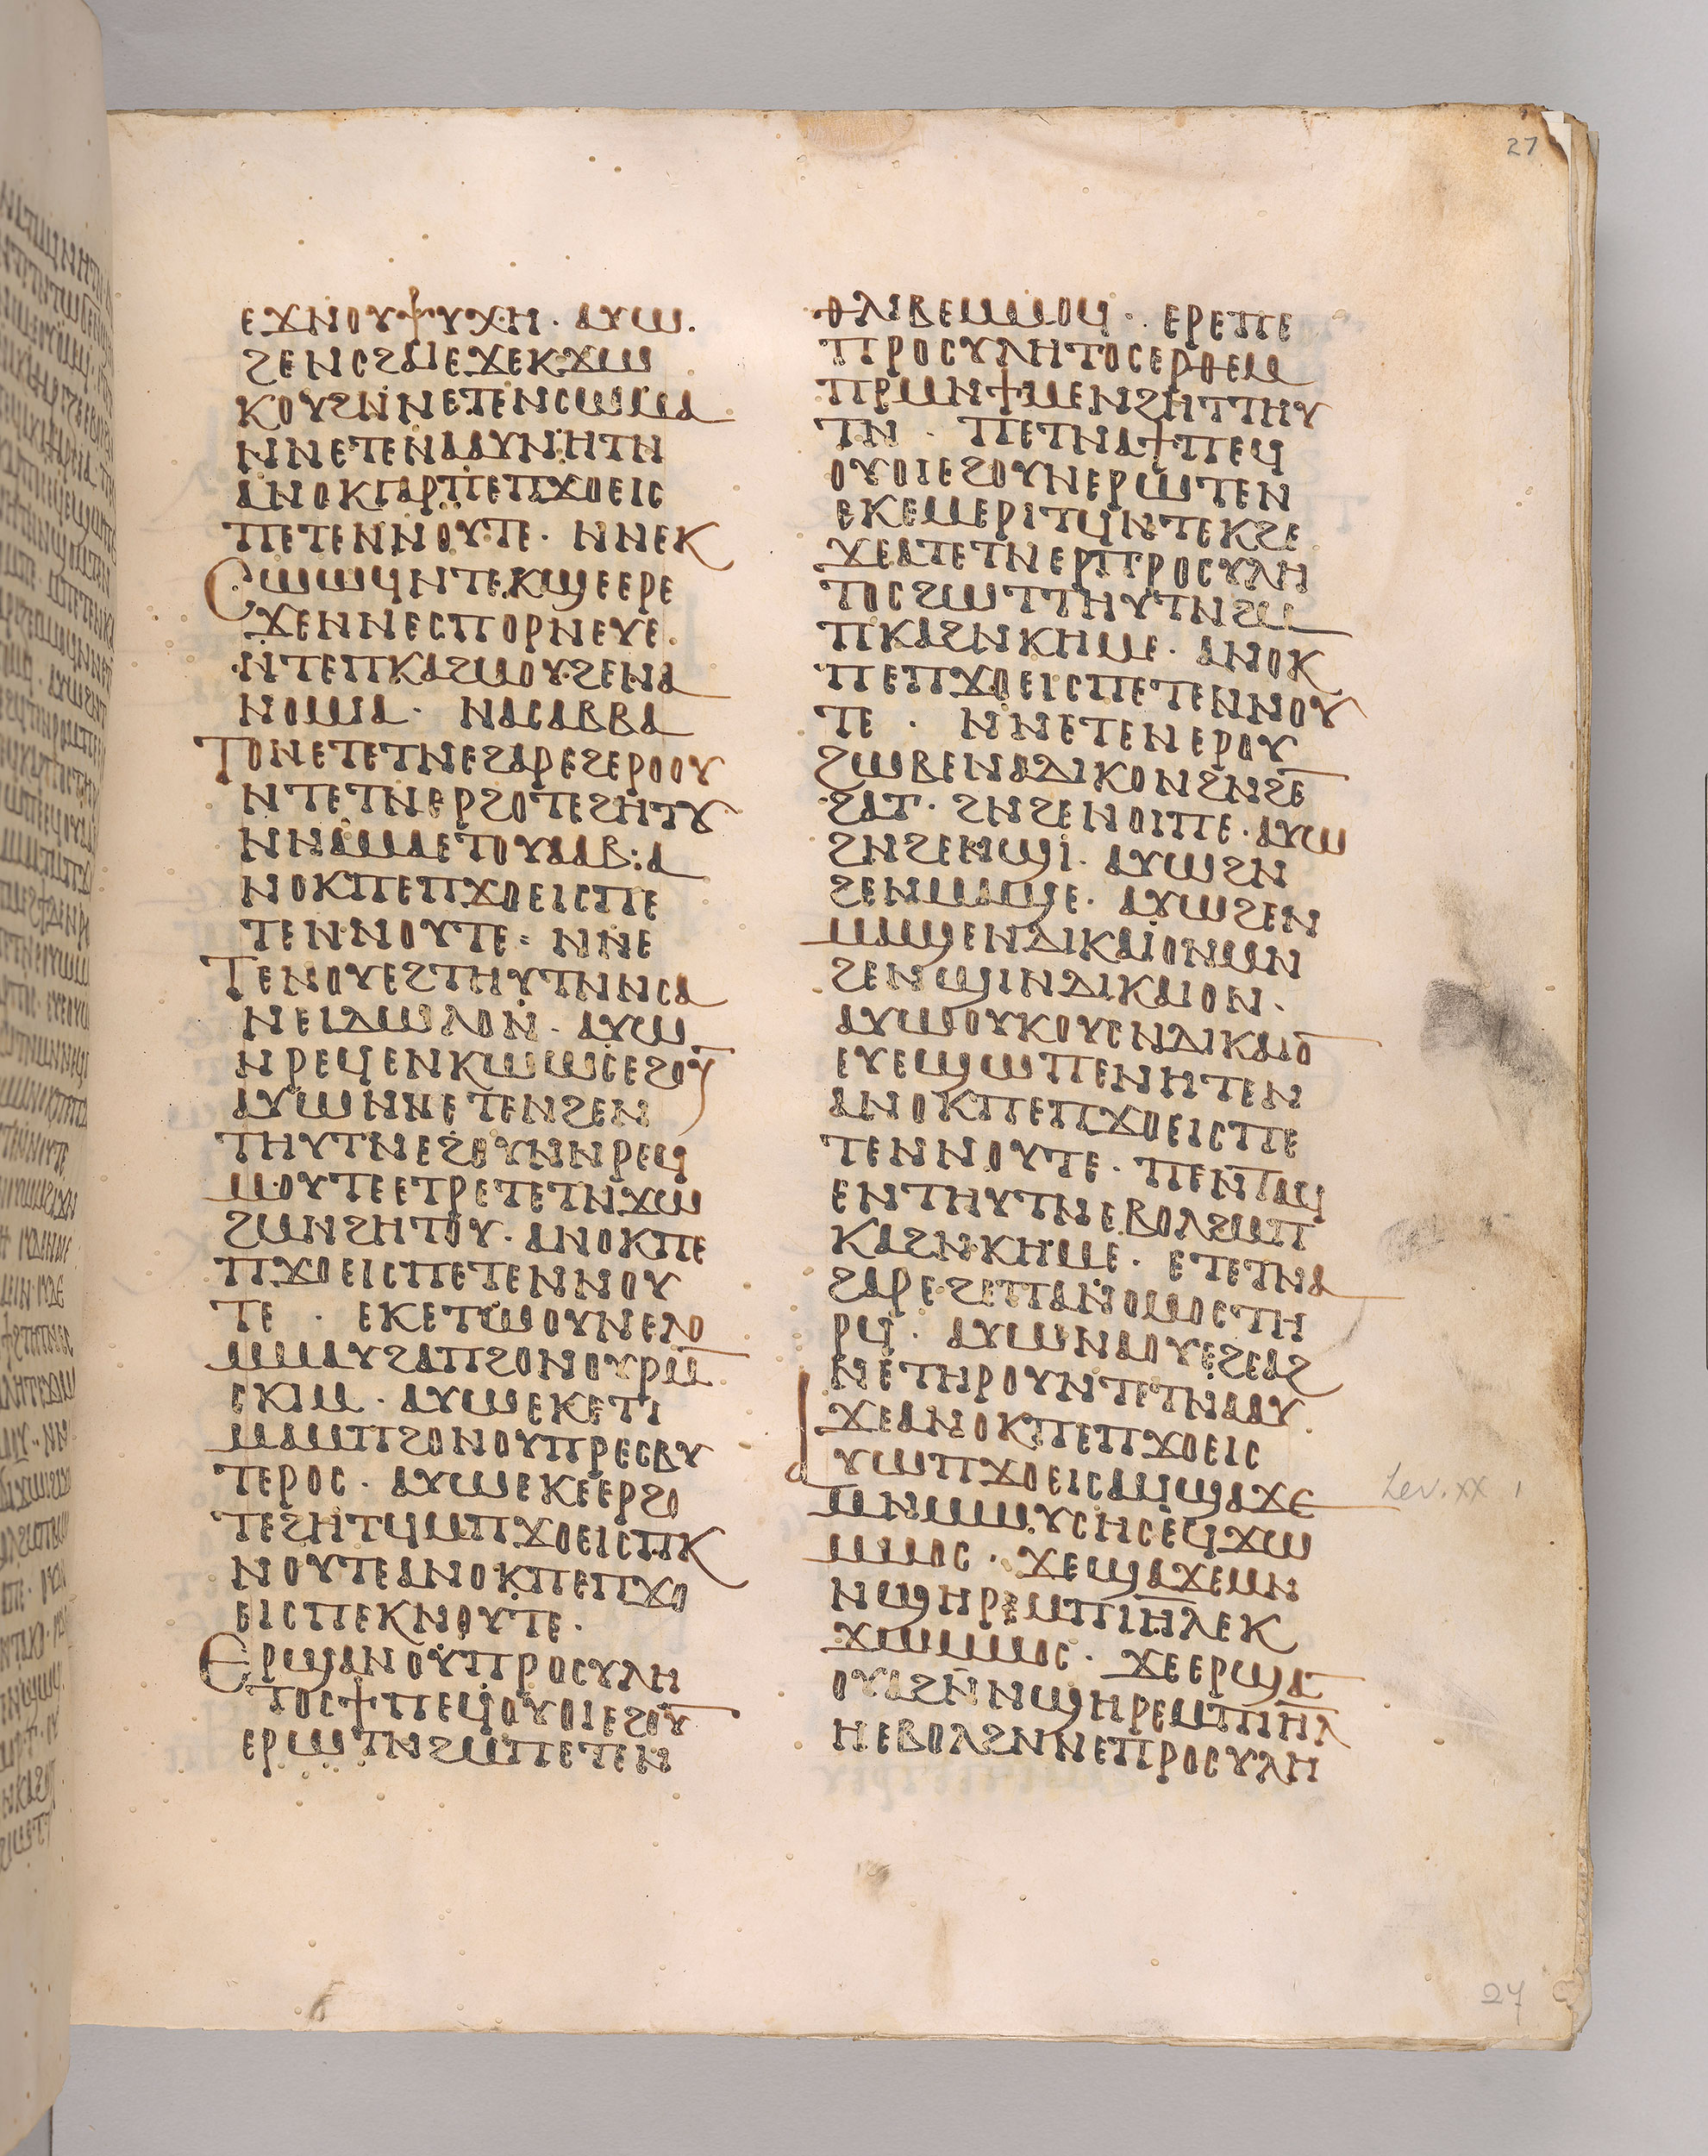 27
ⲉϫⲛⲟⲩⲯⲩⲭⲏ · ⲁⲩⲱ ·
ϩⲉⲛⲥϩⲁⲓⲉϫⲉⲕϫⲱ
ⲕⲟⲩϩⲛⲛⲉⲧⲉⲛⲥⲱⲙⲁ
ⲛⲛⲉⲧⲉⲛⲁⲁⲩⲛⲏⲧⲛ
ⲁⲛⲟⲕⲅⲁⲣⲡⲉⲡϫⲟⲉⲓⲥ
ⲡⲉⲧⲉⲛⲛⲟⲩⲧⲉ · ⲛⲛⲉⲕ
ⲥⲱⲱϥⲛⲧⲉⲕϣⲉⲉⲣⲉ
ϫⲉⲛⲛⲉⲥⲡⲟⲣⲛⲉⲩⲉ ·
ⲛⲧⲉⲡⲕⲁϩⲙⲟⲩϩⲉⲛⲁ
ⲛⲟⲙⲓⲁ · ⲛⲁⲥⲁⲃⲃⲁ
ⲧⲟⲛⲉⲧⲉⲧⲛⲉϩⲁⲣⲉϩⲉⲣⲟⲟⲩ
ⲛⲧⲉⲧⲛⲉⲣϩⲟⲧⲉϩⲏⲧⲩ
ⲛⲛⲁⲙⲁⲉⲧⲟⲩⲁⲁⲃ : ⲁ
ⲛⲟⲕⲡⲉⲡϫⲟⲉⲓⲥⲡⲉ
ⲧⲉⲛⲛⲟⲩⲧⲉ : ⲛⲛⲉ
ⲧⲉⲛⲟⲩⲉϩⲧⲏⲩⲧⲛⲛⲥⲁ
ⲛⲉⲓⲇⲱⲗⲟⲛ · ⲁⲩⲱ
ⲛⲣⲉϥⲉⲛⲕⲱⲱⲥⲉϩⲟⲩ̅
ⲁⲩⲱⲛⲛⲉⲧⲉⲛϩⲉⲛ
ⲧⲏⲩⲧⲛⲉϩⲟⲩⲛⲛⲣⲉϥ
ⲙⲟⲩⲧⲉⲉⲧⲣⲉⲧⲉⲧⲛϫⲱ
ϩⲙⲛϩⲏⲧⲟⲩ · ⲁⲛⲟⲕⲡⲉ
ⲡϫⲟⲉⲓⲥⲡⲉⲧⲉⲛⲛⲟⲩ
ⲧⲉ · ⲉⲕⲉⲧⲱⲟⲩⲛⲉⲗⲟ
ⲙⲙⲁⲩϩⲁⲡϩⲟⲛⲟⲩⲣⲙ̅
ⲥⲕⲓⲙ · ⲁⲩⲱⲉⲕⲉⲧⲓ
ⲙⲁⲙⲡϩⲟⲛⲟⲩⲡⲣⲉⲥⲃⲩ
ⲧⲉⲣⲟⲥ · ⲁⲩⲱⲉⲕⲉⲉⲣϩⲟ
ⲧⲉϩⲏⲧϥⲙⲡϫⲟⲉⲓⲥⲡⲕ
ⲛⲟⲩⲧⲉⲁⲛⲟⲕⲡⲉⲡϫⲟ
ⲉⲓⲥⲡⲉⲕⲛⲟⲩⲧⲉ ·
ⲉⲣϣⲁⲛⲟⲩⲡⲣⲟⲥⲩⲗⲏ
ⲧⲟⲥϯⲡⲉϥⲟⲩⲟⲓⲉϩⲟⲩ̅
ⲉⲣⲱⲧⲛϩⲙⲡⲉⲧⲉⲛ
ⲑⲗⲓⲃⲉⲙⲙⲟϥ · ⲉⲣⲉⲡⲉ
ⲡⲣⲟⲥⲩⲗⲏⲧⲟⲥⲉⲣⲑⲉⲙ
ⲡⲣⲙⲛϯⲙⲉⲛϩⲏⲧⲧⲏⲩ
ⲧⲛ · ⲡⲉⲧⲛⲁϯⲡⲉϥ
ⲟⲩⲟⲓⲉϩⲟⲩⲛⲉⲣⲱⲧⲉⲛ
ⲉⲕⲉⲙⲉⲣⲓⲧϥⲛⲧⲉⲕϩⲉ
ϫⲉⲁⲧⲉⲧⲛⲉⲣⲡⲣⲟⲥⲩⲗⲏ
ⲧⲟⲥϩⲱⲧⲧⲏⲩⲧⲛϩⲙ
ⲡⲕⲁϩⲛⲕⲏⲙⲉ · ⲁⲛⲟⲕ
ⲡⲉⲡϫⲟⲉⲓⲥⲡⲉⲧⲉⲛⲛⲟⲩ
ⲧⲉ · ⲛⲛⲉⲧⲉⲛⲉⲣⲟⲩ
ϩⲱⲃⲉⲛⲁⲇⲓⲕⲟⲛϩⲛϩⲉ̅
ϩⲁⲡ · ϩⲛϩⲉⲛⲟⲓⲡⲉ · ⲁⲩⲱ
ϩⲛϩⲉⲛϣⲓ · ⲁⲩⲱϩⲛ
ϩⲉⲛⲙⲁϣⲉ · ⲁⲩⲱϩⲉⲛ
ⲙⲁϣⲉⲛⲇⲓⲕⲁⲓⲟⲛⲙⲛ
ϩⲉⲛϣⲓⲛⲇⲓⲕⲁⲓⲟⲛ ·
ⲁⲩⲱⲟⲩⲕⲟⲩⲥⲛⲇⲓⲕⲁⲓⲟ̅
ⲉⲩⲉϣⲱⲡⲉⲛⲏⲧⲉⲛ
ⲁⲛⲟⲕⲡⲉⲡϫⲟⲉⲓⲥⲡⲉ
ⲧⲉⲛⲛⲟⲩⲧⲉ · ⲡⲉⲛⲧⲁϥ
ⲉⲛⲧⲏⲩⲧⲛⲉⲃⲟⲗϩⲙⲡ
ⲕⲁϩⲛⲕⲏⲙⲉ · ⲉⲧⲉⲧⲛⲁ
ϩⲁⲣⲉϩⲉⲡⲁⲛⲟⲙⲟⲥⲧⲏ
ⲣϥ · ⲁⲩⲱⲛⲁⲟⲩⲉϩⲥⲁϩ
ⲛⲉⲧⲏⲣⲟⲩⲛⲧⲉⲧⲛⲁⲁⲩ
ϫⲉⲁⲛⲟⲕⲡⲉⲡϫⲟⲉⲓⲥ
ⲁⲩⲱⲡϫⲟⲉⲓⲥⲁϥϣⲁϫⲉ
ⲙⲛⲙⲱⲩⲥⲏⲥⲉϥϫⲱ
ⲙⲙⲟⲥ · ϫⲉϣⲁϫⲉⲙⲛ
ⲛϣⲏⲣⲉⲙⲡⲓⲏ̅ⲗⲉⲕ
ϫⲱⲙⲙⲟⲥ · ϫⲉⲉⲣϣⲁ̅
ⲟⲩⲁϩⲛⲛϣⲏⲣⲉⲙⲡⲓⲏ̅ⲗ
ⲏⲉⲃⲟⲗϩⲛⲛⲉⲡⲣⲟⲥⲩⲗⲏ
Lev. xx 1
27